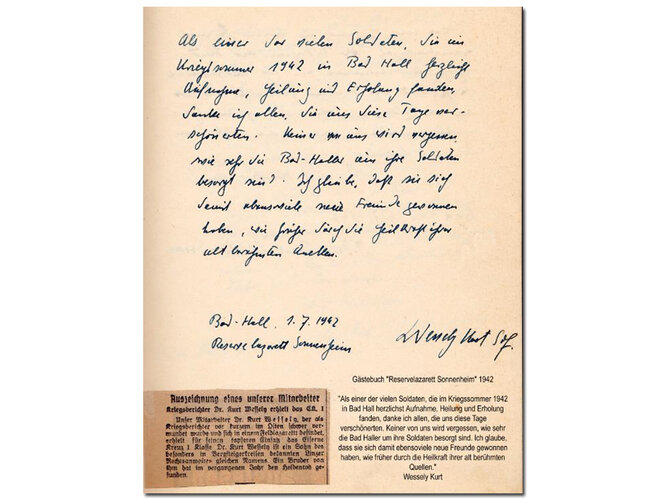 Als einer der vielen Soldaten, die im
Kriegssommer 1942 in Bad Hall herzlichst
Aufnahme, Heilung und Erholung fanden,
danke ich allen, die uns diese Tage ver-
schönerten. Keiner von uns wird vergessen,
wie sehr die Bad-Haller um ihre Soldaten
besorgt sind. Ich glaube, daß sie sich
damit ebensoviele neue Freunde gewonnen
haben, wie früher durch die Heilkraft ihrer
alt berühmten Quellen.
Bad-Hall, 1.7.1942
Reservelazarett Sonnenheim
Wessely Kurt
Auszeichnung eines unserer Mitarbeiter
Kriegsberichter Dr. Kurt Wessely erhielt das E.K. I
Unser Mitarbeiter Dr. Kurt Wessely, der als
Kriegsberichter vor kurzem im Osten schwer ver-
wundet wurde und sich in einem Feldlazarett befindet,
erhielt für seinen tapferen Einsatz das Eiserne
Kreuz 1. Klasse. Dr. Kurt Wessely ist ein Sohn des
besonders in Bergsteigerkreisen bekannten Linzer
Rechtsanwaltes gleichen Namens. Ein Bruder von
ihm hat im vergangenen Jahr den Heldentod
gefunden.
Gästebuch "Reservelazarett Sonnenheim" 1942
"Als einer der vielen Soldaten, die im Kriegssommer 1942
in Bad Hall herzlichst Aufnahme, Heilung und Erholung
fanden, danke ich allen, die uns diese Tage
verschönerten. Keiner von uns wird vergessen, wie sehr
die Bad Haller um ihre Soldaten besorgt sind. Ich glaube,
dass sie sich damit ebensoviele neue Freunde gewonnen
haben, wie früher durch die Heilkraft ihrer alt berühmten
Quellen."
Wessely Kurt